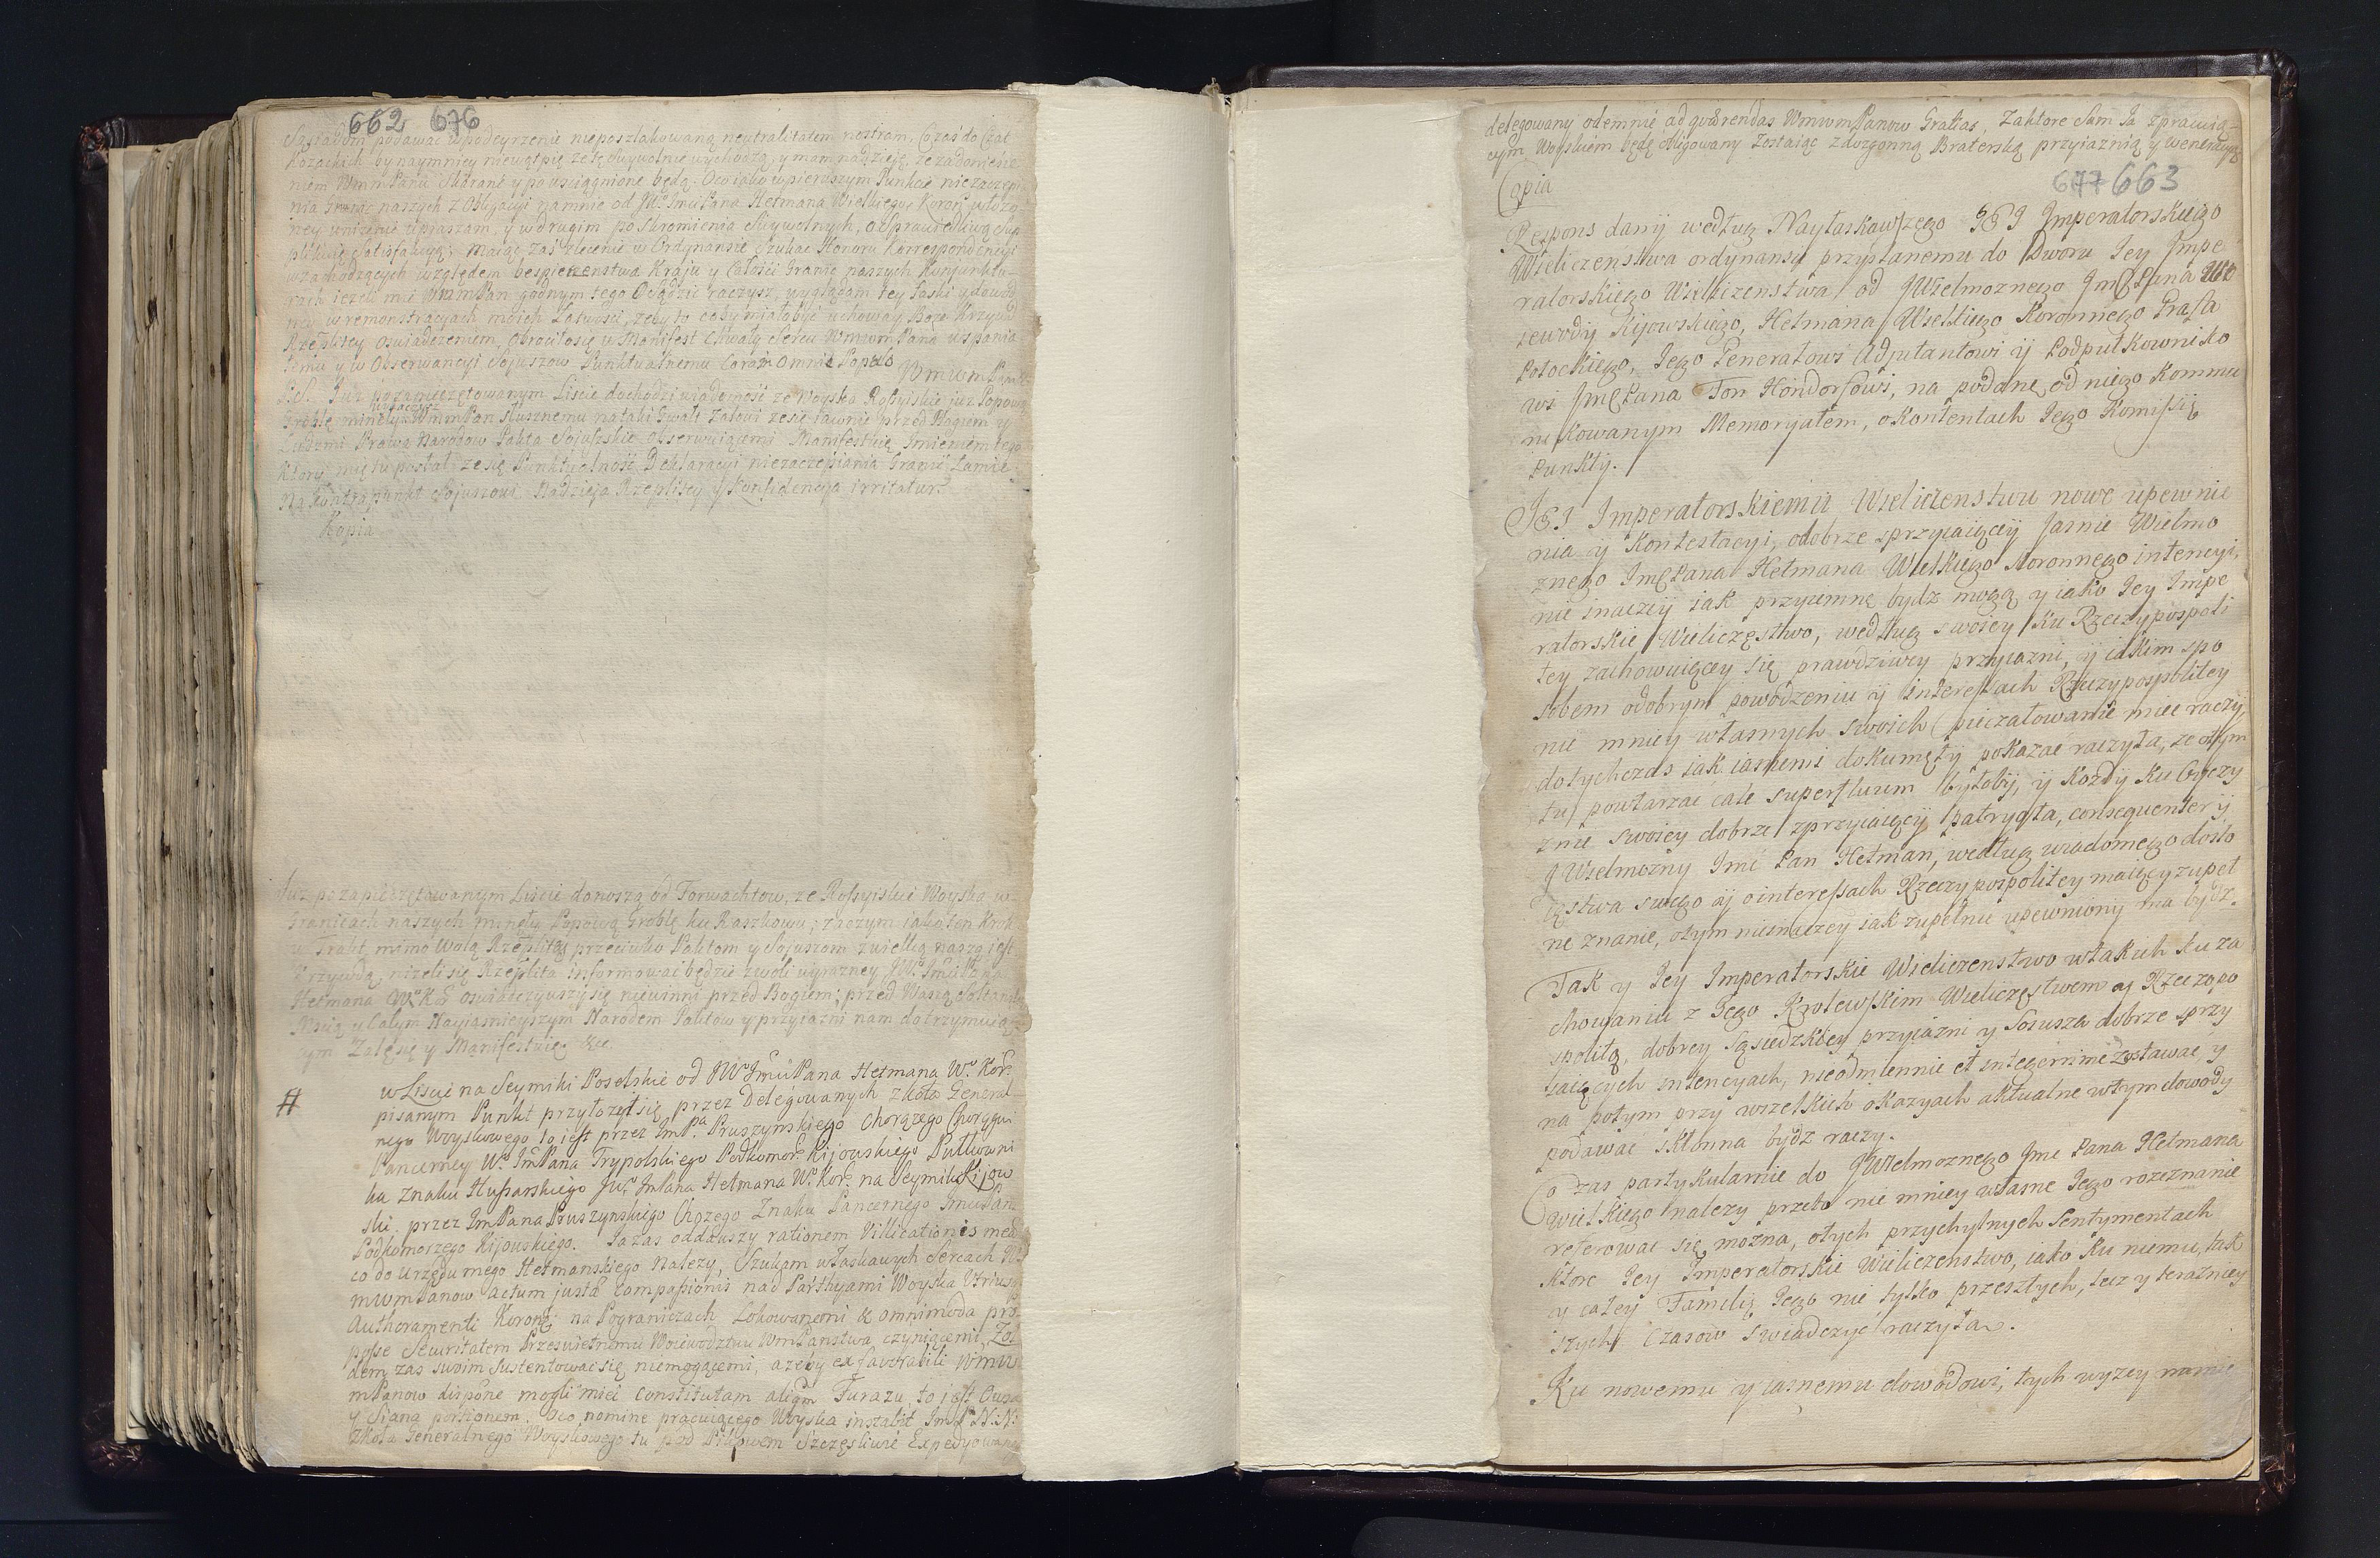 662 676
Sąsiadom podawać w podeyrzenie nieposzlakowaną neutralitatem nostram, Co zaś do Czat
Kozackich by naymniey niewątpię że tę swywolnie wychodzą, y mam nadzieję, że za doniesie
niem WmmPanu skarane y powściągnione będą. Oco iako w pierwszym Punkcie niezaczepi
nia Granic naszych z Obligacyi na mnie od JWo Jmci Pana Hetmana Wielkiego Koron włożo
ney unizenie upraszam, y w drugim poskromienia swywolnych, o sprawiedliwą suplikuię
satisfakcyą; Maiąc zaś zlecenie w Ordynansie szukać Honoru Korrespondencyi
w zachodzących względem bespieczenstwa Kraju y Całości Granic naszych Kunjunktu-
rach jeżeli mię WmmPan godnym tego Osądzić raczysz, wyglądam tey łaski y dowod
ney w remonstracyach moich łatwości, żeby to coby miało być uchoway Boże krzywd
Rzeplitey oswiadczeniem, obrociło się w Manifest Chwały Sercu WmwmPana wspania
łemu y w Obserwancyi Sojuszow Punktualnemu Coram Omni Populo WmwmPana
Już po zapieczętowanym Liscie dochodzi wiadomość że Woyska Rossyiskie już Popową
Groblę minęły WmmPan słusznemu na taki Gwałt żalowi że się rownie przed Bogiem y
Ludzmi Prawa Narodow Pakta Sojuszskie obserwuiącemi Manifestuię Imieniem tego
Ktory mię tu posłał, że się Punktualność Deklaracyi niezaczepiania Granic Łamie
Na kontrapunkt Sojuszowi Nadzieja Rzeplitey y konfidencya irritatur.
Kopia
Już po zapieczętowanym Liscie donoszą od Forwachtow, że Rossyiskie Woyska w
Granicach naszych minęły Popową Groblę ku Raszkowu; zaczym iako ten Krok
y Trakt mimo Wolą Rzeplitey przeciwko Paktom y Sojuszom z wielką naszą jest
Krzywdą, niżeli się Rzeplita informować będzie z woli wyrazney JWo Jmci Pana
Hetmana Wo Ko oswiadczywszy się niewinni przed Bogiem; przed Waszą Sołtańską
Mcią y Całym Nayiasnieyszym Narodem Paktow y przyiazni nam dotrzymuią
cym Żalę się y Manifestuię &c.
# w Liscie na Seymiki Poselskie od JWo Jmci Pana Hetmana Wo Kor:
pisanym Punkt przyłożył się przez Delegowanych z Koła General
nego Woyskowego to jest przez Jm Pa Pruszynskiego Chorążego Chorągwi
Pancerney Wo Jm Pana Trypolskiego Podkomor: Kijowskiego Pułkowni
ka Znaku Hussarskiego JWo Jm Pana Hetmana Wo Kor: na Seymik Kijow
ski. przez Jm Pana Pruszynskiego Chożego Znaku Pancernego Jmci Pana
Podkomorzego Kijowskiego. Ja zas oddawszy rationem Villicationis mea
co do Urzędu mego Hetmanskiego Należy, Szukam w łaskawych Sercach W
mwmPanow actum justa Compassionis nad Partyami Woyska Utriusq
Authoramenti Koronę na Pograniczach Lokowanemi & omnimoda pro
posse Securitatem Przeswietnemu Woiewodztwu WmPanstwa czyniącemi, Żoł
dem zas swoim sustentować się niemogącemi, ażeby ex favorabili Wmw
mPanow dispone mogli mieć Constitutam aliqm Furazu, to jest Owsa
y Siana portionem. Oco nomine pracuiącego Woyska instabit Jm P N: N:
z Koła Generalnego Woyskowego tu pod Pilipowem Szczęsliwie Expedyowany
delegowany odemnie ad quærendas WmwmPanow Gratias, Zaktore Sam Ja z pracuią-
cym Woyskiem będę obligowany zostaiąc z dozgonną Braterską przyiaznią y weneracyą
Copia
677 663
Respons dany według Nayłaskawszego JEJ Imperatorskiego
Wieliczenstwa ordynansu przysłanemu do Dworu Jey Impe
ratorskiego Wieliczenstwa, od JWielmoznego JmCPana Wo
iewody Kijowskiego, Hetmana Wielkiego Koronnego Grafa
Potockiego, Jego Generałowi Adjutantowi y Podpułkowniko
wi JmCPana Fon Hondorsowi, na podane od niego Kommu
nikowanym Memoryałem, o Kontentach Jego Komissij
Punkty.
JEJ Imperatorskiemu Wieliczenstwu nowe upewnie
nia y Kontestacyi, o dobrze sprzyiaiącey Jasnie Wielmo
znego JmCPana Hetmana Wielkiego Koronnego intencyi,
nie inaczey iak przyiemne bydz mogą y iako Jey Impe
ratorskie Wieliczęstwo, według swoiey Ku Rzeczypospoli
tey zachowuiącey się prawdziwey przyiazni, y iakim spo
sobem o dobrym powodzeniu y interessach Rzeczypospolitey
nie mniey własnych swoich pieczałowanie miec raczy,
dotychczas iak iasnemi dokumęty pokazac raczyła, ze o tym
tu powtarzac cale superfluum byłoby, y kozdy Ku Oyczy
znie swoiey dobrze zprzyiaiący patryota, consequenter y
JWielmozny Jmc Pan Hetman, według wiadomego dosto
ięstwa swego y o interessach Rzeczypospolitey maiący zupeł
ne znanie, o tym nieinaczey iak zupełnie upewniony ma bydz.
Tak y Jey Imperatorskie Wieliczenstwo w takich ku za
chowaniu z Jego Krolewskim Wieliczęstwem y Rzecząpo
spolitą, dobrey Sąsiedzkiey przyiazni y Sojusza dobrze sprzy
iaiących intencyach, nieodmiennie et integerrime zostawac, y
na potym przy wszelkich okazyach aktualne w tym dowody
podawac skłonna bydz raczy.
Co zas partykularnie do JWielmoznego Jmc Pana Hetmana
Wielkiego nalezy przeto nie mniey własne Jego rozeznanie
referowac się mozna, o tych przychylnych Sentymentach
ktore Jey Imperatorskie Wieliczenstwo, iako Ku niemu, tak
y całey Familij Jego nie tylko przeszłych, lecz y teraznie
iszych Czasow swiadczyc raczyła.
Ku nowemu y iasnemu dowodowi, tych wyzey namie